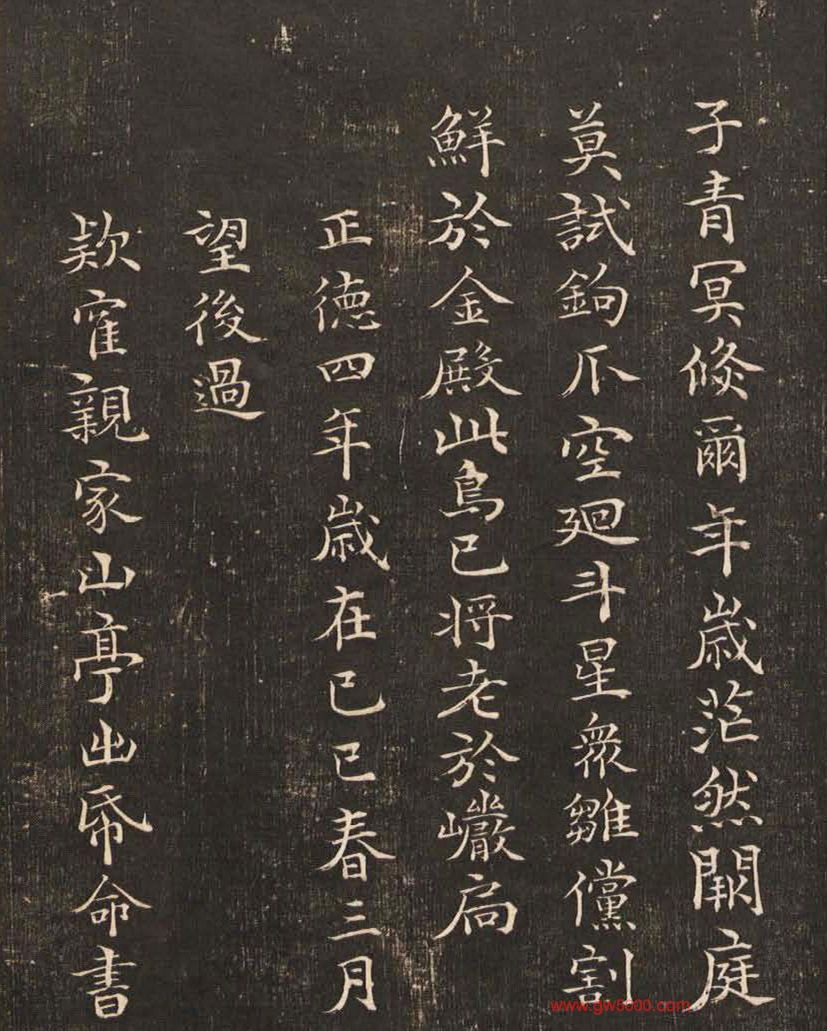 子青冥倏爾年歲茫然闕庭
莫試鉤爪空廻斗星衆雛儻割
鮮於金殿此鳥已將老於巖扃
正德四年歲在己巳春三月
望後過
款寉親家山亭出帋命書
www.gw5000.com